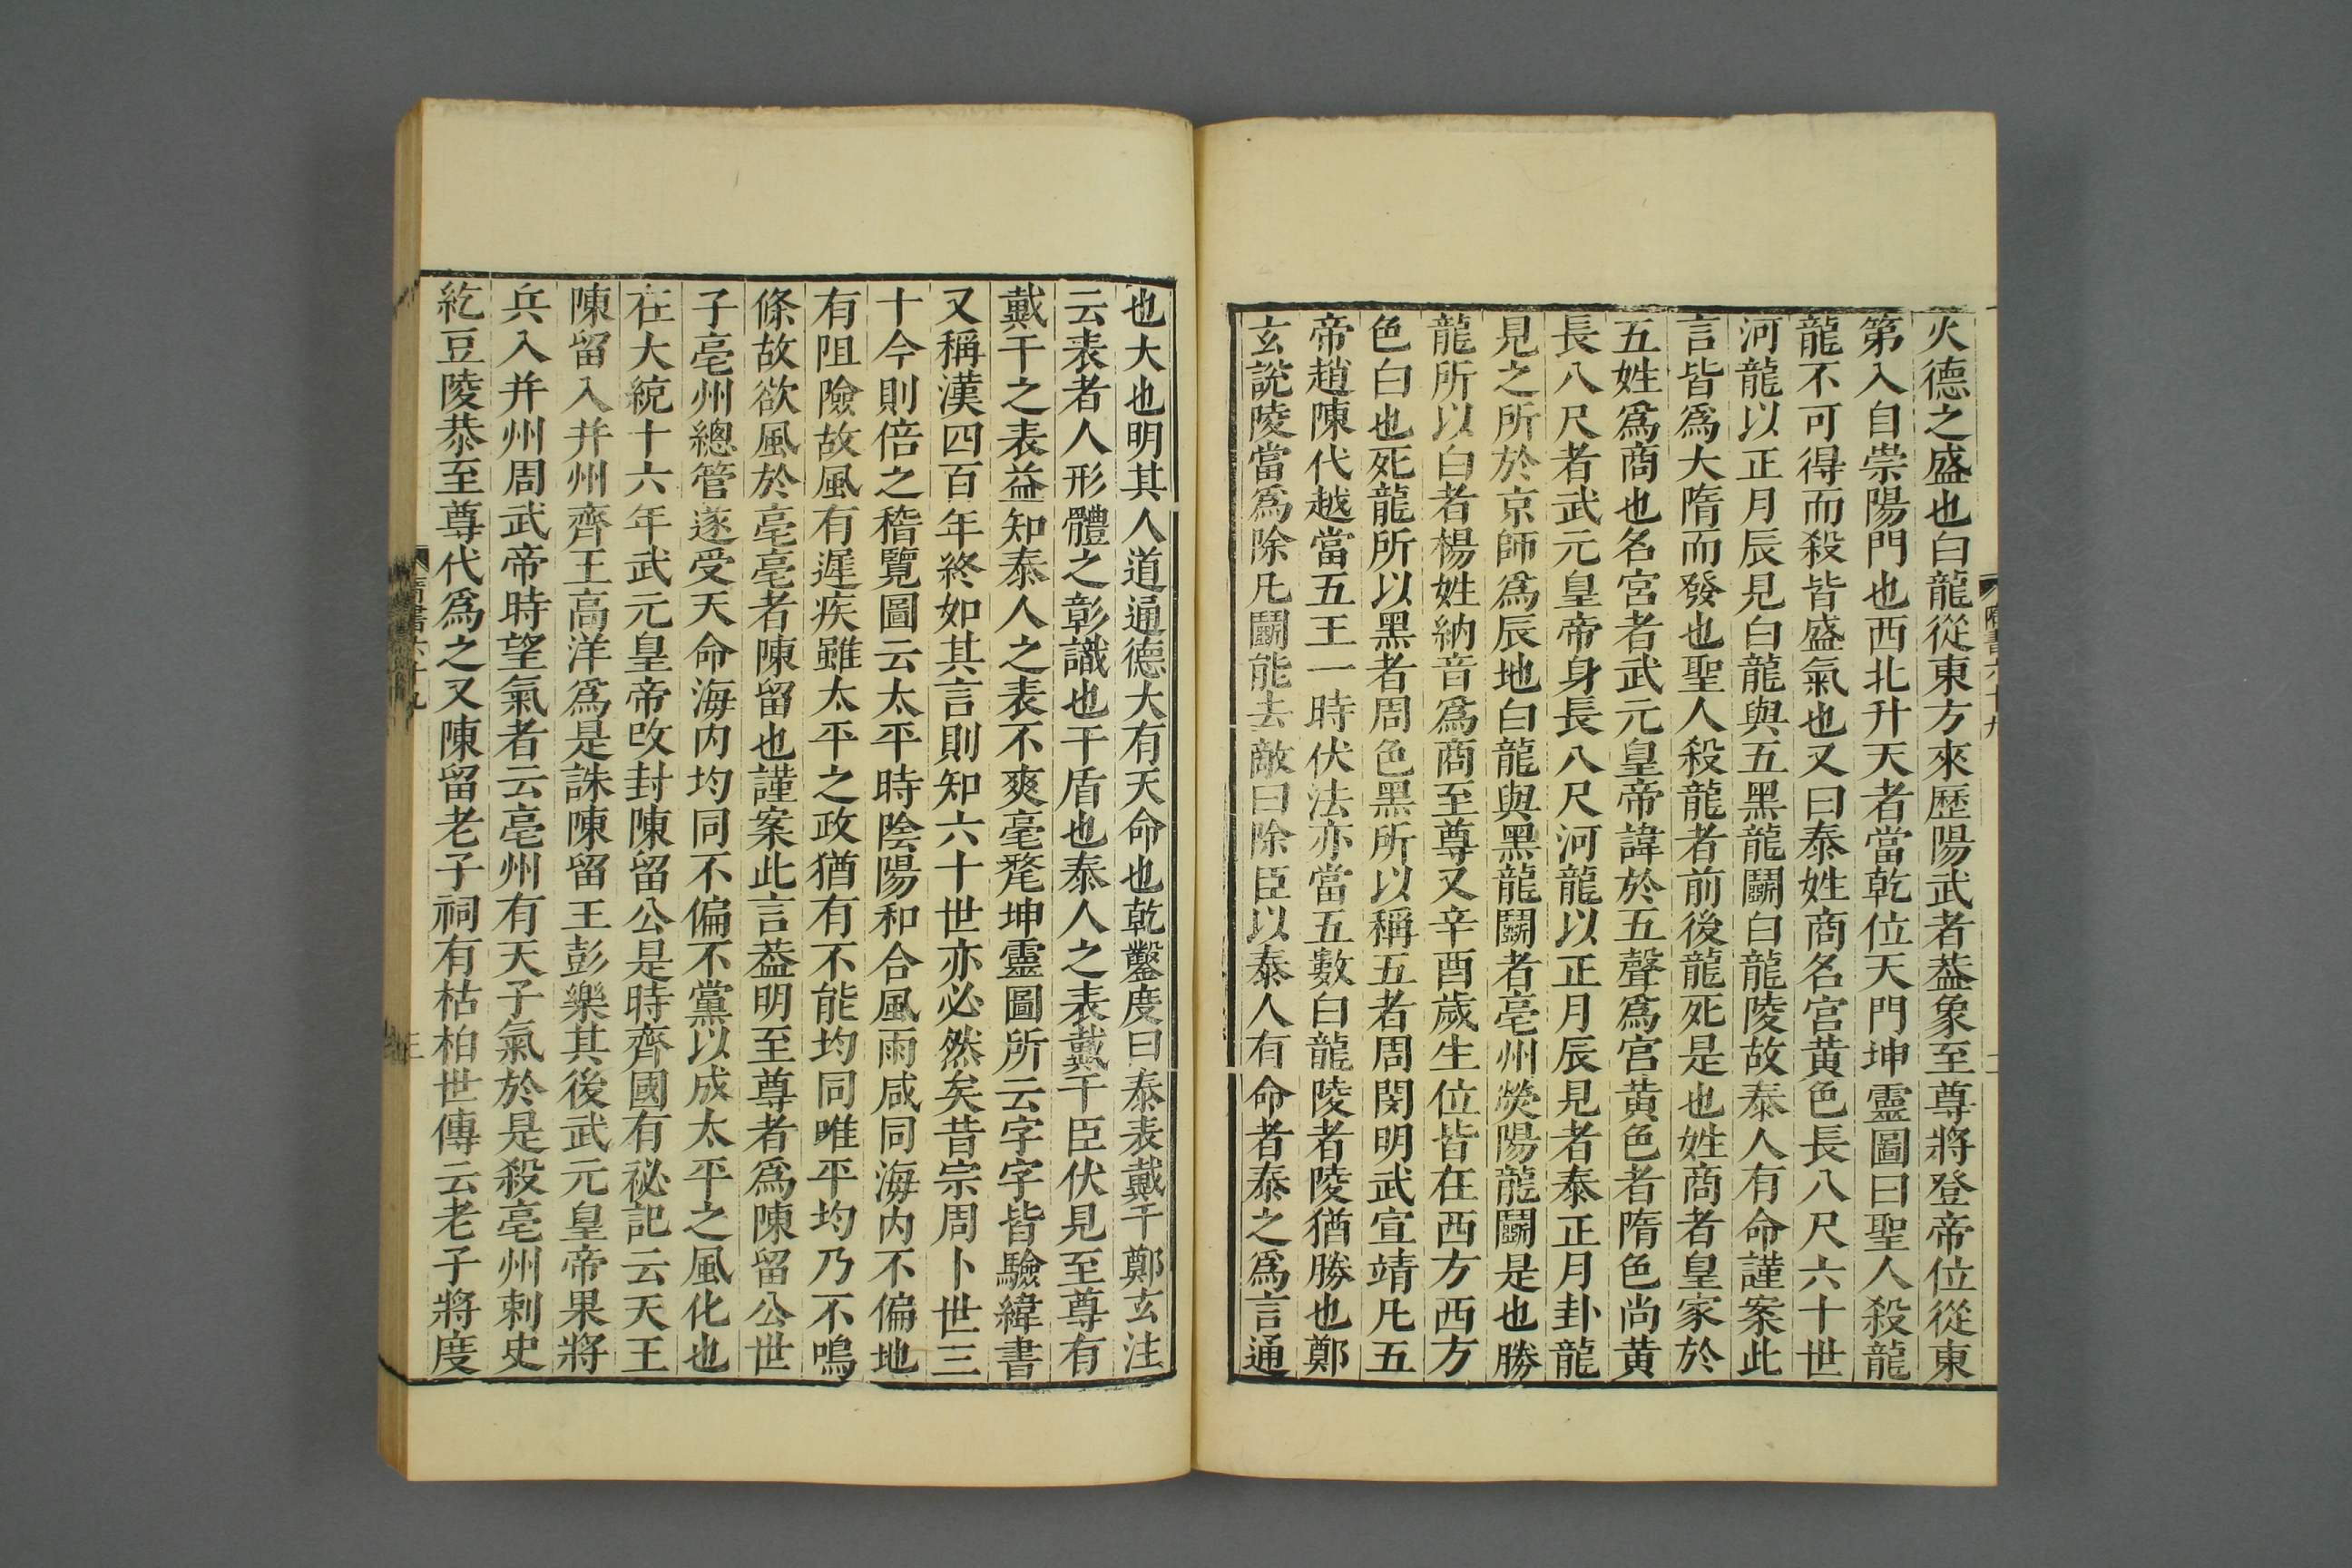 火德之盛也白龍從東方來歷陽武者葢象至尊將登帝位從東
第入自崇陽門也西北升天者當乾位天門坤靈圖曰聖人殺龍
龍不可得而殺皆盛氣也又曰泰姓商名宫黄色長八尺六十世
河龍以正月辰見白龍與五黑龍鬬白龍陵故泰人有命謹案此
言皆爲大隋而發也聖人殺龍者前後龍死是也姓商者皇家於
五姓爲商也名宫者武元皇帝諱於五聲爲宫黄色者隋色尚黄
長八尺者武元皇帝身長八尺河龍以正月辰見者泰正月卦龍
見之所於京師爲辰地白龍與黑龍鬬者亳州熒陽龍鬬是也勝
龍所以白者楊姓納音爲商至尊又辛酉歲生位皆在西方西方
色白也死龍所以黑者周色黑所以稱五者周閔明武宣靖凡五
帝趙陳代越當五王一時伏法亦當五數白龍陵者陵猶勝也鄭
玄説陵當爲除凡鬬能去敵曰除臣以泰人有命者泰之爲言通
也大也明其人道通德大有天命也乾鑿度曰泰表戴干鄭玄注
云表者人形體之彰識也干盾也泰人之表戴干臣伏見至尊有
戴干之表益知泰人之表不爽亳氂坤靈圖所云字字皆驗緯書
又稱漢四百年終如其言則知六十世亦必然矣昔宗周卜世三
十今則倍之稽覽圖云太平時陰陽和合風雨咸同海内不偏地
有阻險故風有遲疾雖太平之政猶有不能均同唯平均乃不鳴
條故欲風於亳亳者陳留也謹案此言葢明至尊者爲陳留公世
子亳州總管遂受天命海内均同不偏不黨以成太平之風化也
在大統十六年武元皇帝改封陳留公是時齊國有祕記云天王
陳留入幷州齊王高洋爲是誅陳留王彭樂其後武元皇帝果將
兵入幷州周武帝時望氣者云亳州有天子氣於是殺亳州刺史
紇豆陵恭至尊代爲之又陳留老子祠有枯柏世傳云老子將度